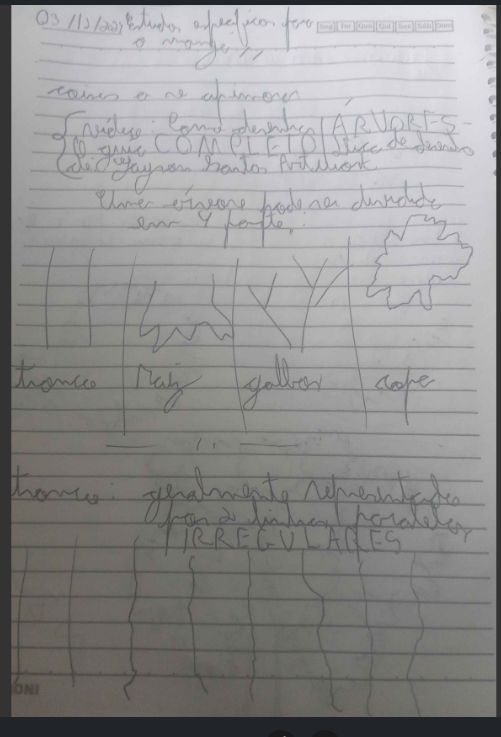 03/12/202 Estudos específicos para
o mangá
Seg Ter Qua Qui Sex Sáb Dom
coisas a se aprimorar
vídeo: Como desenhar ÁRVORES -
O guia COMPLETO | dica de desenho
de Jayson Santos Artwork
Uma árvore pode ser dividida
em 4 parte:
tronco Raiz galhos copa
tronco: geralmente representados
por 2 linhas paralelas
IRREGULARES
ONI